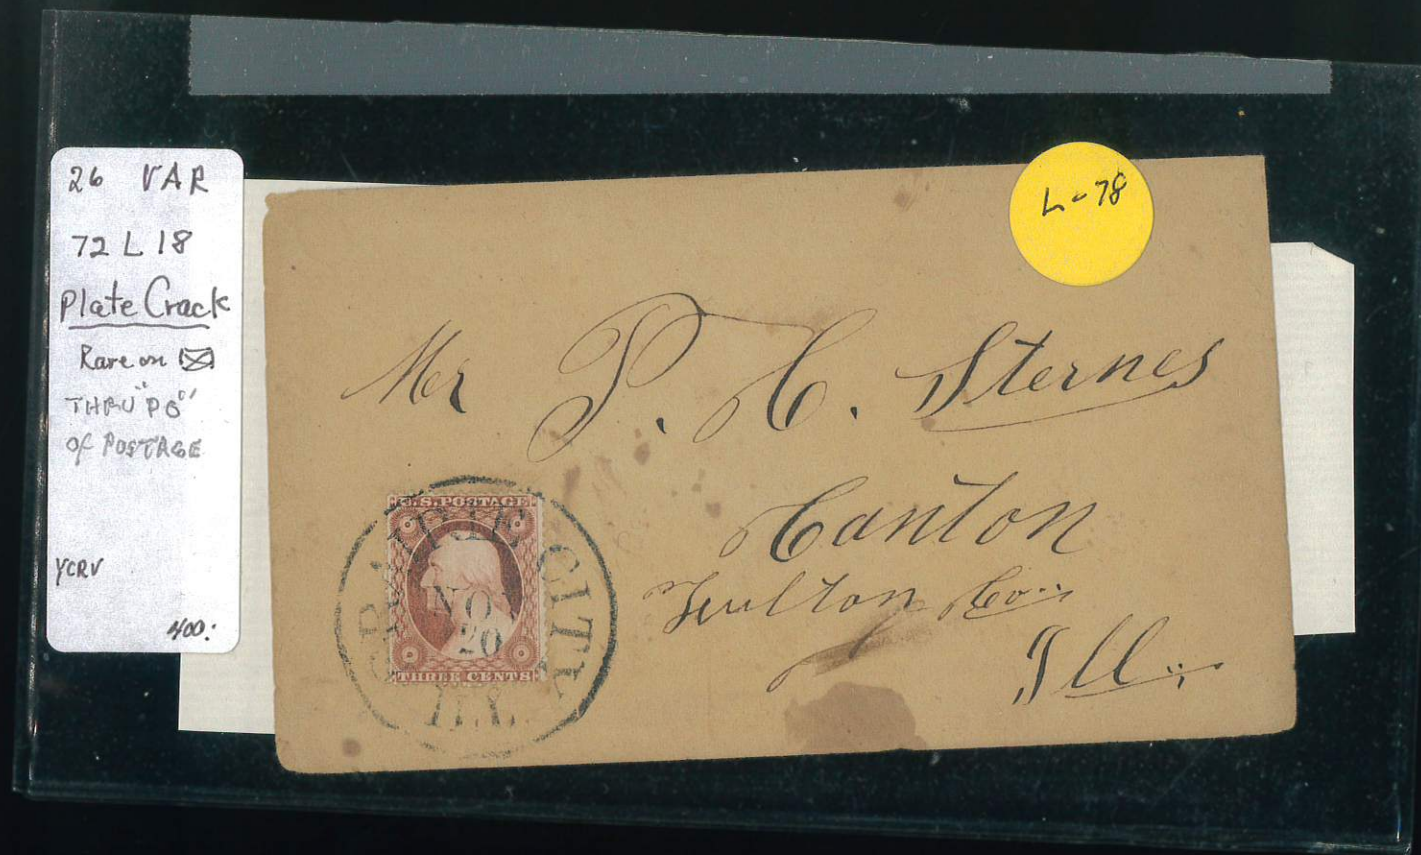 26 VAR
72 L 18
Plate Crack
Rare on
THRU "PO"
of POSTAGE
YCRV
400:
L-78
Mr P. C. Sternes
Canton
Fulton Co.
Ill.
U.S. POSTAGE
THREE CENTS
PRAIRIE CITY
NO
20
ILL.